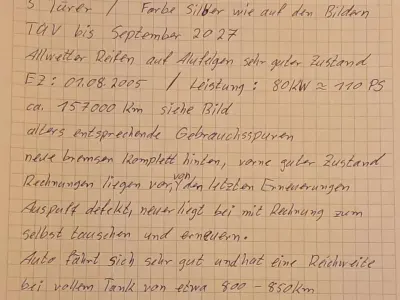 5 Türer / Farbe Silber wie auf den Bildern
TÜV bis September 2027
Allwetter Reifen auf Alufelgen sehr guter Zustand
EZ: 01.08.2005 / Leistung: 80KW ≈ 110 PS
ca. 157000 Km siehe Bild
alters entsprechende Gebrauchsspuren
neue bremsen Komplett hinten, vorne guter Zustand
Rechnungen liegen vor, von den letzten Erneuerungen
Auspuff defekt, neuer liegt bei mit Rechnung zum
selbst tauschen und erneuern.
Auto fährt sich sehr gut und hat eine Reichweite
bei vollem Tank von etwa 800 - 850km